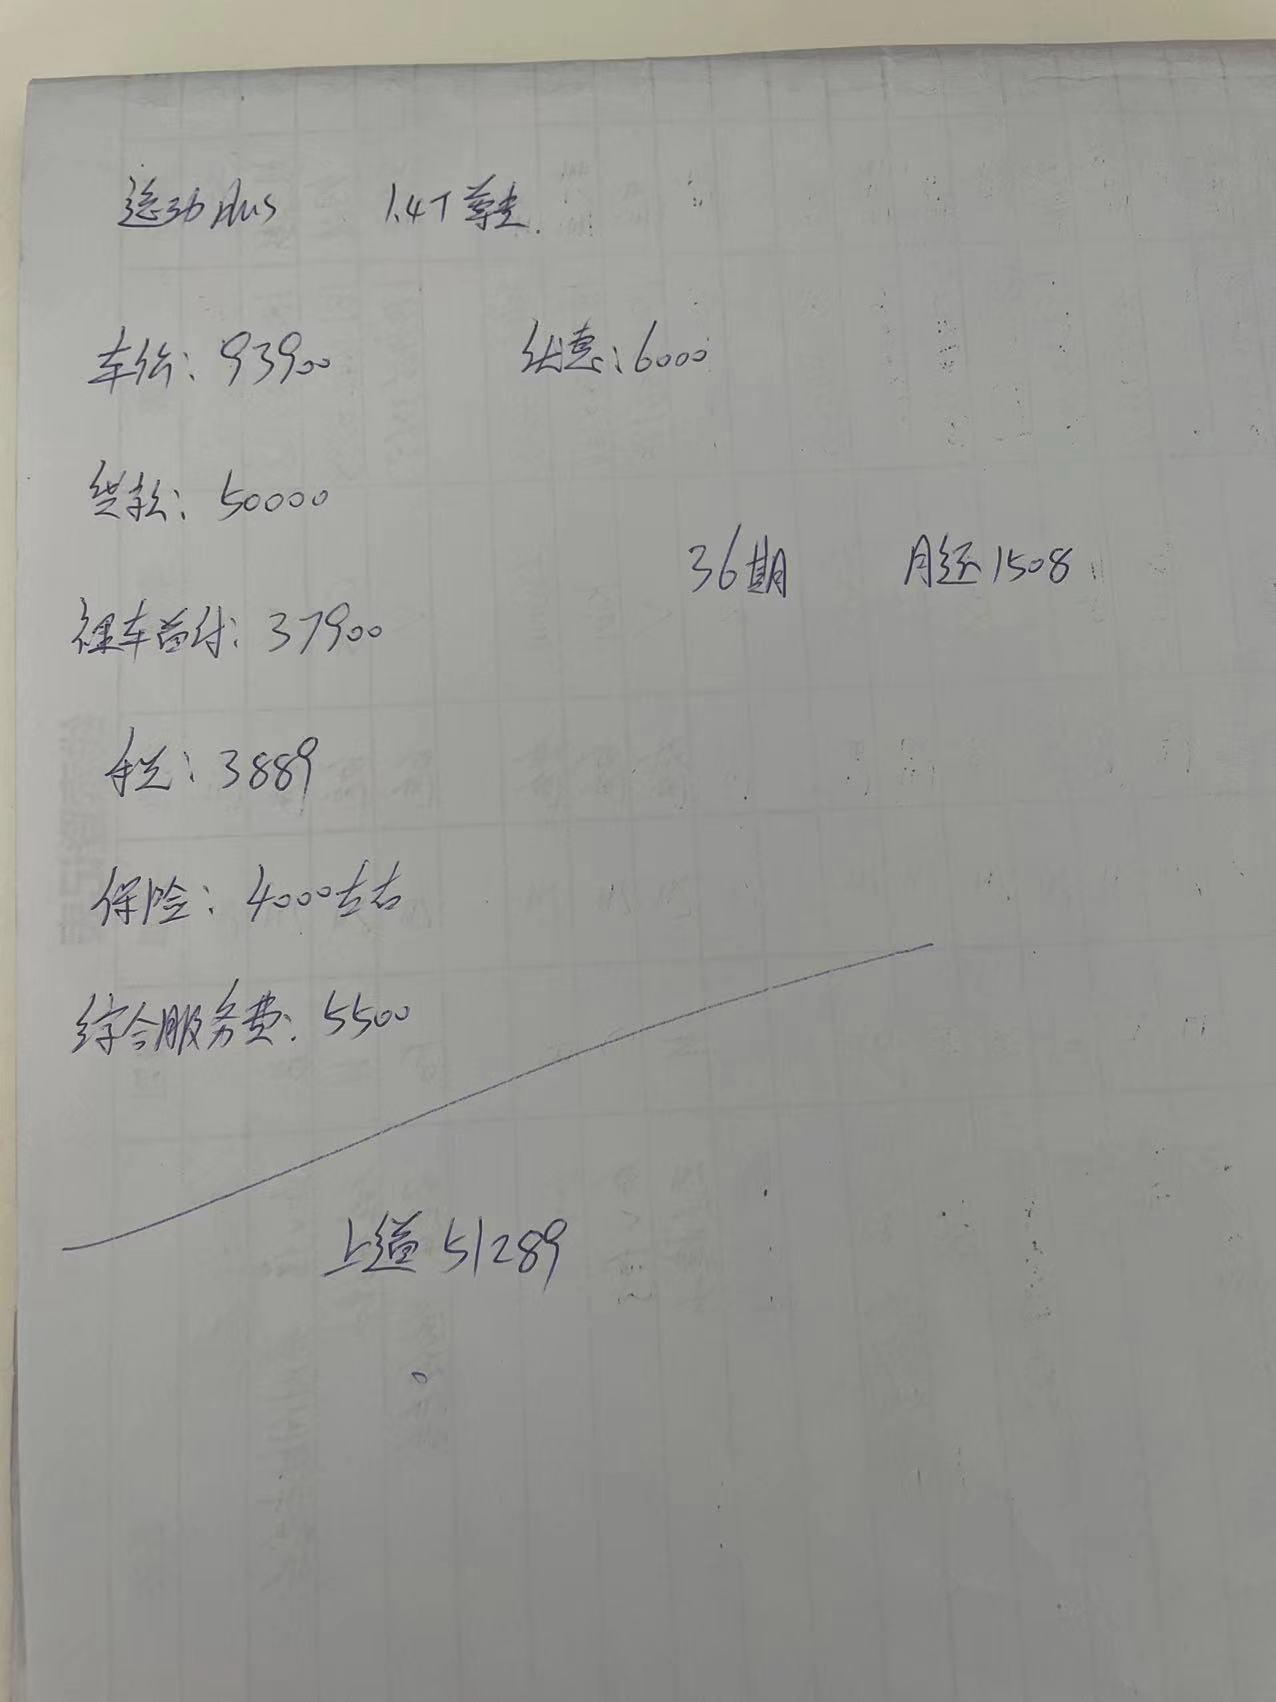 运动plus 1.4T尊贵.
车价: 93900 优惠: 6000
贷款: 50000
36期 月还1508
裸车首付: 37900
税: 3889
保险: 4000左右
综合服务费: 5500
上道 51289